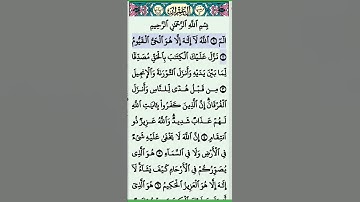 بِسْمِ ٱللَّهِ ٱلرَّحْمَٰنِ ٱلرَّحِيمِ
الٓمٓ ١ ٱللَّهُ لَآ إِلَٰهَ إِلَّا هُوَ ٱلْحَىُّ ٱلْقَيُّومُ
٢ نَزَّلَ عَلَيْكَ ٱلْكِتَٰبَ بِٱلْحَقِّ مُصَدِّقًا
لِّمَا بَيْنَ يَدَيْهِ وَأَنزَلَ ٱلتَّوْرَىٰةَ وَٱلْإِنجِيلَ
٣ مِن قَبْلُ هُدًى لِّلنَّاسِ وَأَنزَلَ
ٱلْفُرْقَانَ إِنَّ ٱلَّذِينَ كَفَرُوا۟ بِـَٔايَٰتِ ٱللَّهِ
لَهُمْ عَذَابٌ شَدِيدٌ وَٱللَّهُ عَزِيزٌ ذُو
ٱنتِقَامٍ ٤ إِنَّ ٱللَّهَ لَا يَخْفَىٰ عَلَيْهِ شَىْءٌ
فِى ٱلْأَرْضِ وَلَا فِى ٱلسَّمَآءِ ٥ هُوَ ٱلَّذِى
يُصَوِّرُكُمْ فِى ٱلْأَرْحَامِ كَيْفَ يَشَآءُ لَآ
إِلَٰهَ إِلَّا هُوَ ٱلْعَزِيزُ ٱلْحَكِيمُ ٦ هُوَ ٱلَّذِىٓ